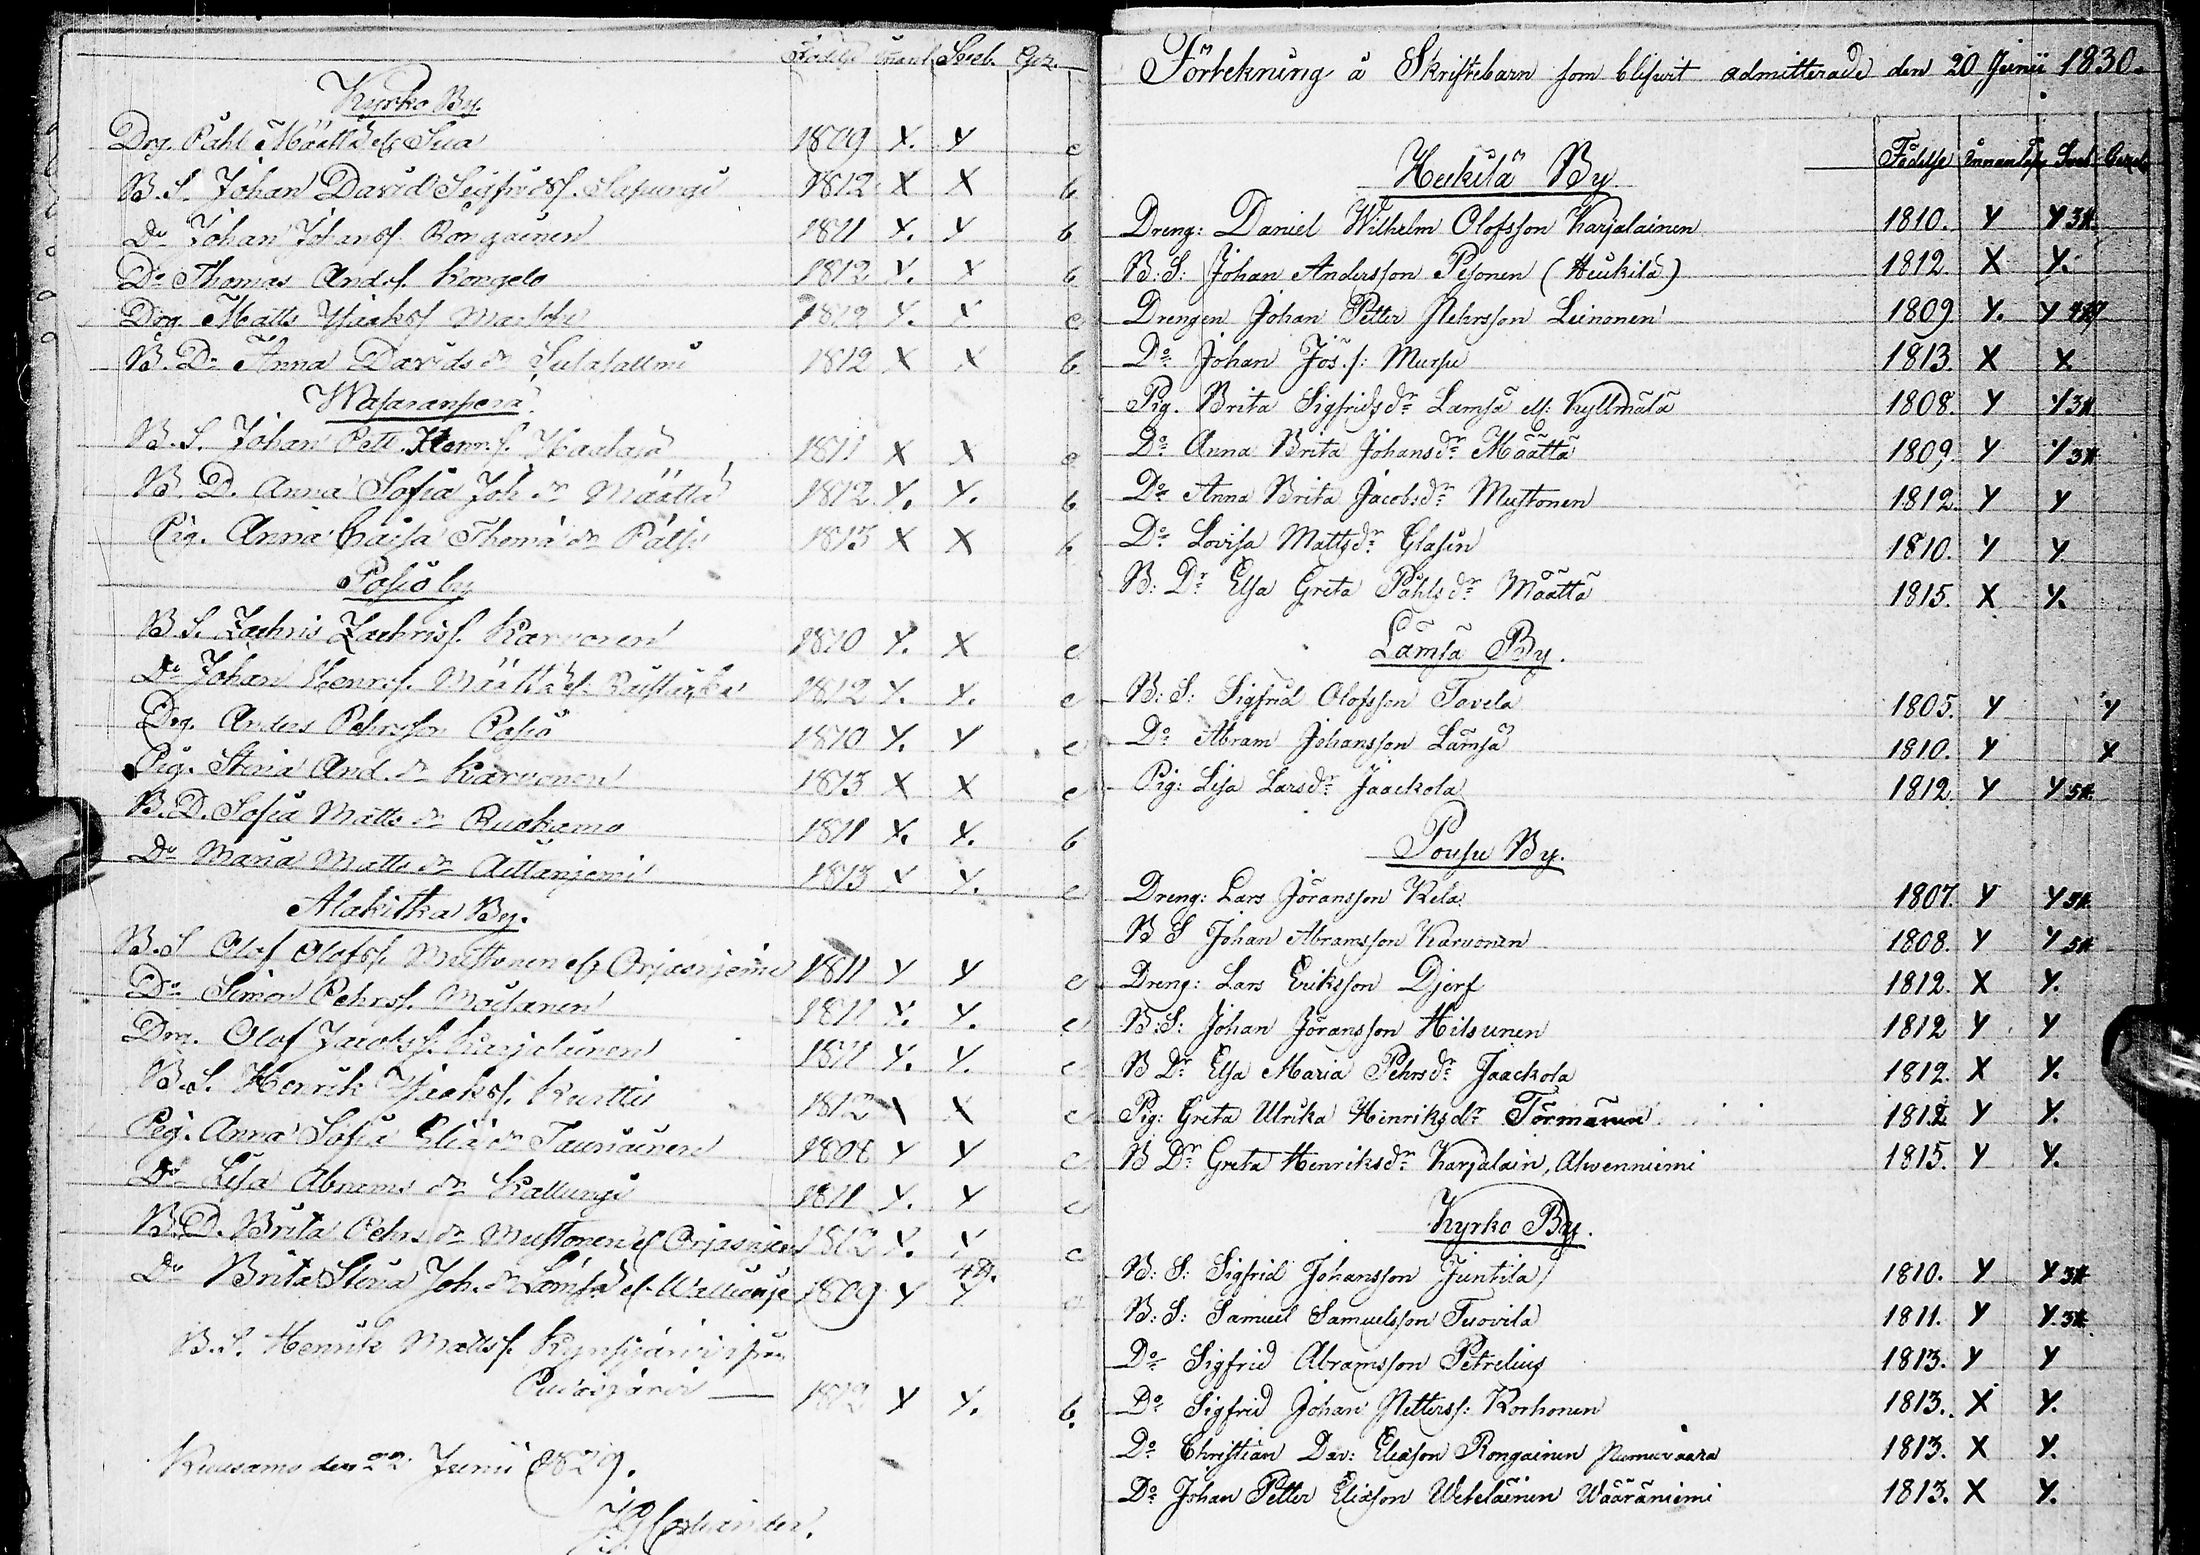 Födelse Innanl Sveb. Gez.
Kyrko By.
Drg. Påhl Määttä el. Sua 1809 X. Y c
B. S. Johan David Sigfridss. Säpungi 1812 X X b
Do Johan Johanss. Rongainen 1811 Y. Y b
Do Thomas Ands. Kongelo 1812 Y. X b
Drg Matts Isaks. 1812 Y. Y c
B. Dr Anna Davids dr 1812 X X b
Wasaranperä
B. S. Johan Pett. Henr.s. 1811 X X c
B. D. Anna Sofia Joh. dr Määttä 1812 Y. Y. b
Pig. Anna Caisa Thom. dr Pätsi 1813 X X b
Posio by
B S. Zachris Zachriss. Karvonen 1810 Y. X c
Do Johan Henrs. Määttä el. 1812 Y. Y. c
Drg. Anders Pehrsson Posio 1810 Y. Y c
Pig. Stina And. dr Karvonen 1813 X X c
B. D. Sofia Matts dr Ruokamo 1811 Y. Y. b
Do Maria Matts dr 1813 Y Y. c
Alakitka By.
B. S Olof Olofss. Mustonen el. Orjasniemi 1811 Y Y c
Do Simon Pehrss. 1811 Y. Y. c
Drg. Olof Jacobss. Karjalainen 1811 Y. Y. c
B. S. Henrik Isaks. Kurtti 1812 X X c
Pig. Anna Sofia Eliä dr Tauriainen 1808 Y Y c
Do Lisa Abrams dr Kallungi 1811 Y. Y c
B. D. Brita Pehrs dr Mustonen el. 1812 Y. Y c
Do Brita Stina Joh. dr Lämsä el. 1809 Y Y
B. S. Henrik Matts.
Pudasjärvi 1812 Y Y. b.
Kuusamo den 22. Junii 1829.
Förtekning å Skriftebarn som blifvit admitterade den 20 Junii 1830.
Födelse Innanläs Sveb
Heikilä By
Dreng: Daniel Wilhelm Olofsson Karjalainen 1810. Y Y 3#.
B: S: Johan Andersson Pesonen (Heikilä) 1812. X Y.
Drengen Johan Petter Pehrsson Leinonen 1809. Y. Y
Do Johan Jös. s: Mursu 1813. X X.
Pig. Brita Sigfridsdr Lämsä ell: Kyllmälä 1808. Y Y 3#
Do Anna Brita Johansdr Määttä 1809. Y Y 3#
Do Anna Brita Jacobsdr Mustonen 1812. Y Y
Do Lovisa Mattsdr Glasin 1810. Y Y.
B: Dr Elsa Greta Påhlsdr Määttä 1815. X Y.
Lämsä By.
B: S: Sigfrid Olofsson Tavela 1805. Y Y
Do Abram Johansson Lämsä 1810. Y X
Pig: Lisa Larsdr Jaackola 1812. Y Y 5#.
Pousu By.
Dreng: Lars Jöransson Kela 1807. Y Y 5#
B S Johan Abramsson Karvonen 1808. Y Y 5#
Dreng: Lars Eriksson Djerf 1812. X Y.
B: S: Johan Jöransson Hilsunen 1812 Y Y
B Dr Elsa Maria Pehrsdr Jaackola 1812. X Y.
Pig: Greta Ulrika Henriksdr Törmänen 1812 Y Y.
B Dr Greta Henriksdr Karjalain, Ahvenniemi 1815. Y Y.
Kyrko By.
B: S: Sigfrid Johansson Juntila 1810. Y Y 3#
B: S: Samuel Samuelsson Tuovila 1811. Y Y. 3#.
Do Sigfrid Abramsson Petrelius 1813. Y Y
Do Sigfrid Johan Petterss: Korhonen 1813. X Y.
Do Christian Dav: Eliäson Rongainen Nurmivaara 1813. X Y.
Do Johan Petter Eliäson Weteläinen Wääräniemi 1813. X Y.